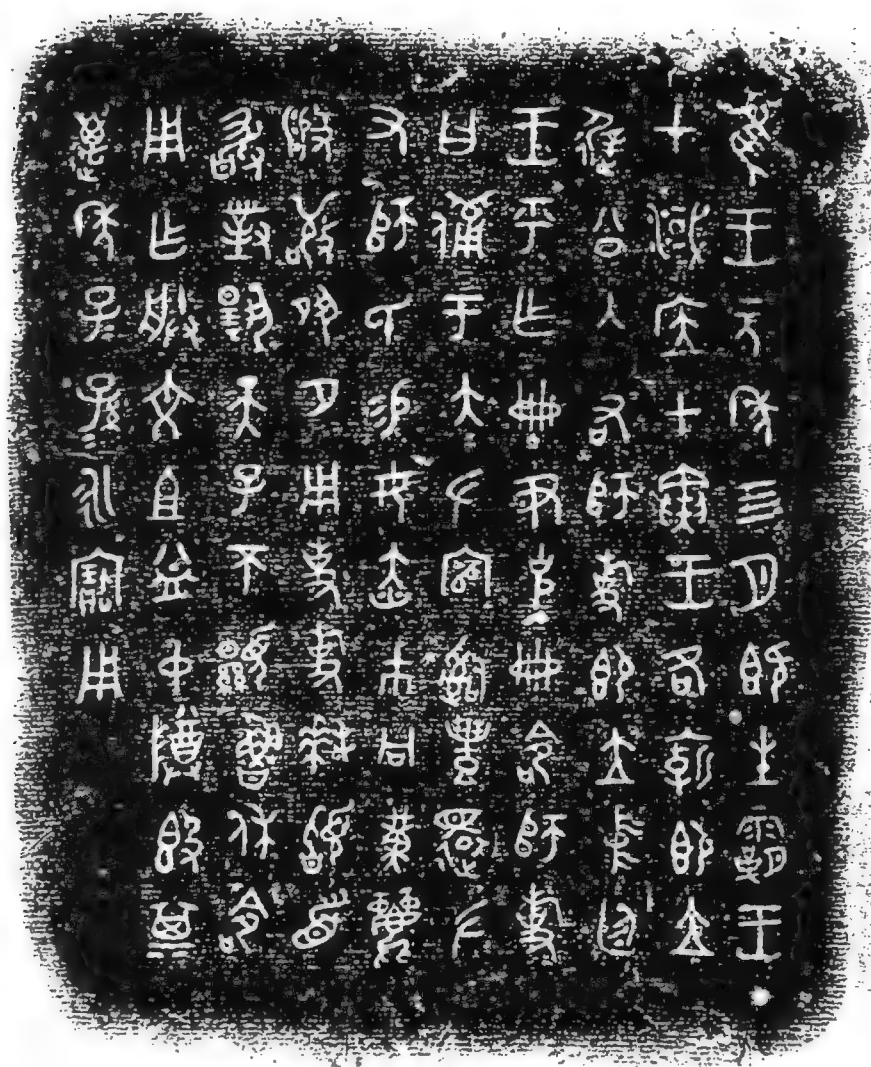 隹王元年四月既生霸王
才淢应甲寅王各廟即立
遲公入右師旋即立中廷
王乎乍冊尹克冊命師旋
曰備于大左官𤔲豐還左
又師氏易女赤巿冋黃麗
般敬夙夕用事旋拜𩒨首
敢對揚天子不顯魯休命
用乍朕文且益中尊𣪘其
邁年子孫永寶用